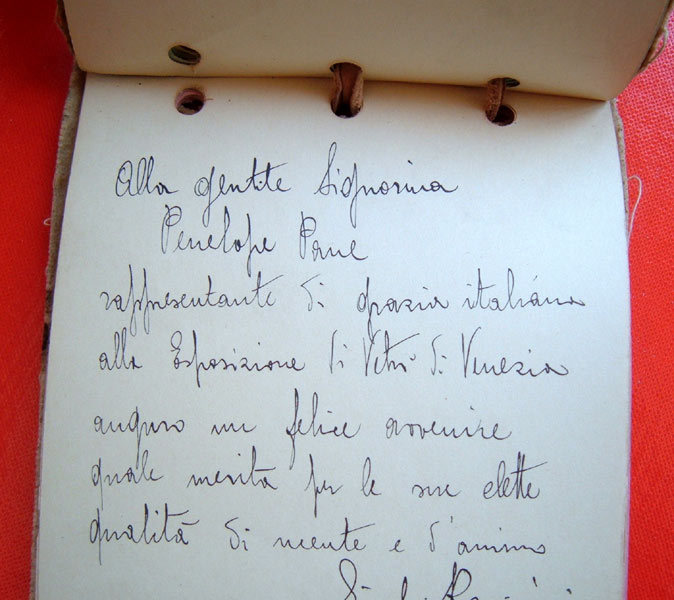 Alla gentile Signorina
Penelope Pane
rappresentante di grazia italiana
alla Esposizione di Vetri di Venezia
auguro un felice avvenire
quale merita per le sue elette
qualità di mente e d'animo